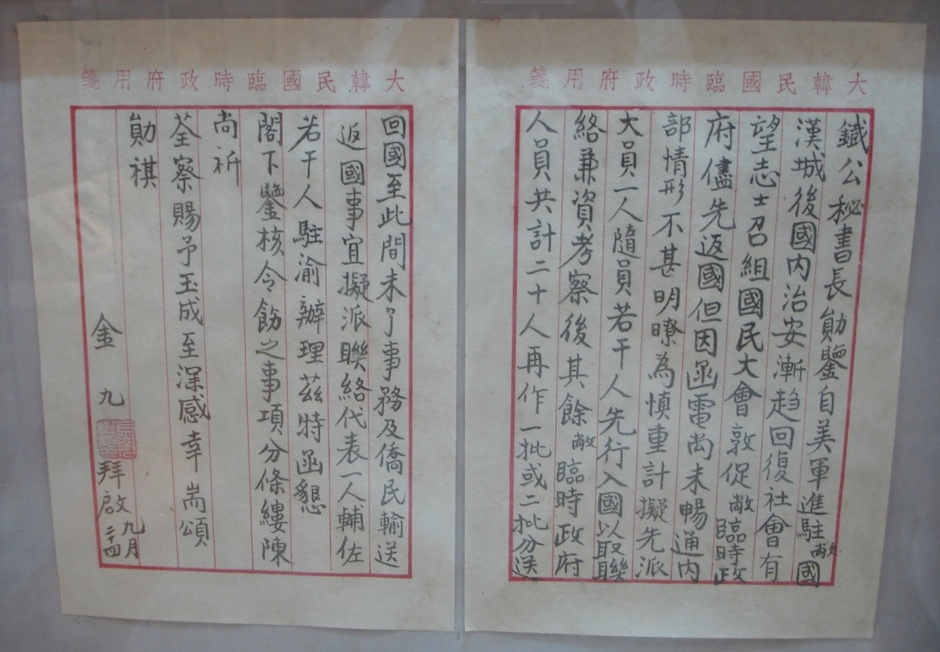 大韓民國臨時政府用箋
鐵公秘書長勛鑒自美軍進駐敝國
漢城後國内治安漸趋回復社會有
望志士召組國民大會敦促敝臨時政
府儘先返國但因函電尚未暢通内
部情形不甚明瞭為慎重計擬先派
大員一人隨員若干人先行入國以取聯
絡兼資考察後其餘敝臨時政府
人員共計二十人再作一批或二批分送
大韓民國臨時政府用箋
回國至此間未了事務及僑民輸送
返國事宜擬派聯絡代表一人輔佐
若干人駐渝辦理茲特函懇
閣下鑒核令飭之事項分條縷陳
尚祈
荃察賜予玉成至深感幸耑頌
勛祺
金九拜啟九月